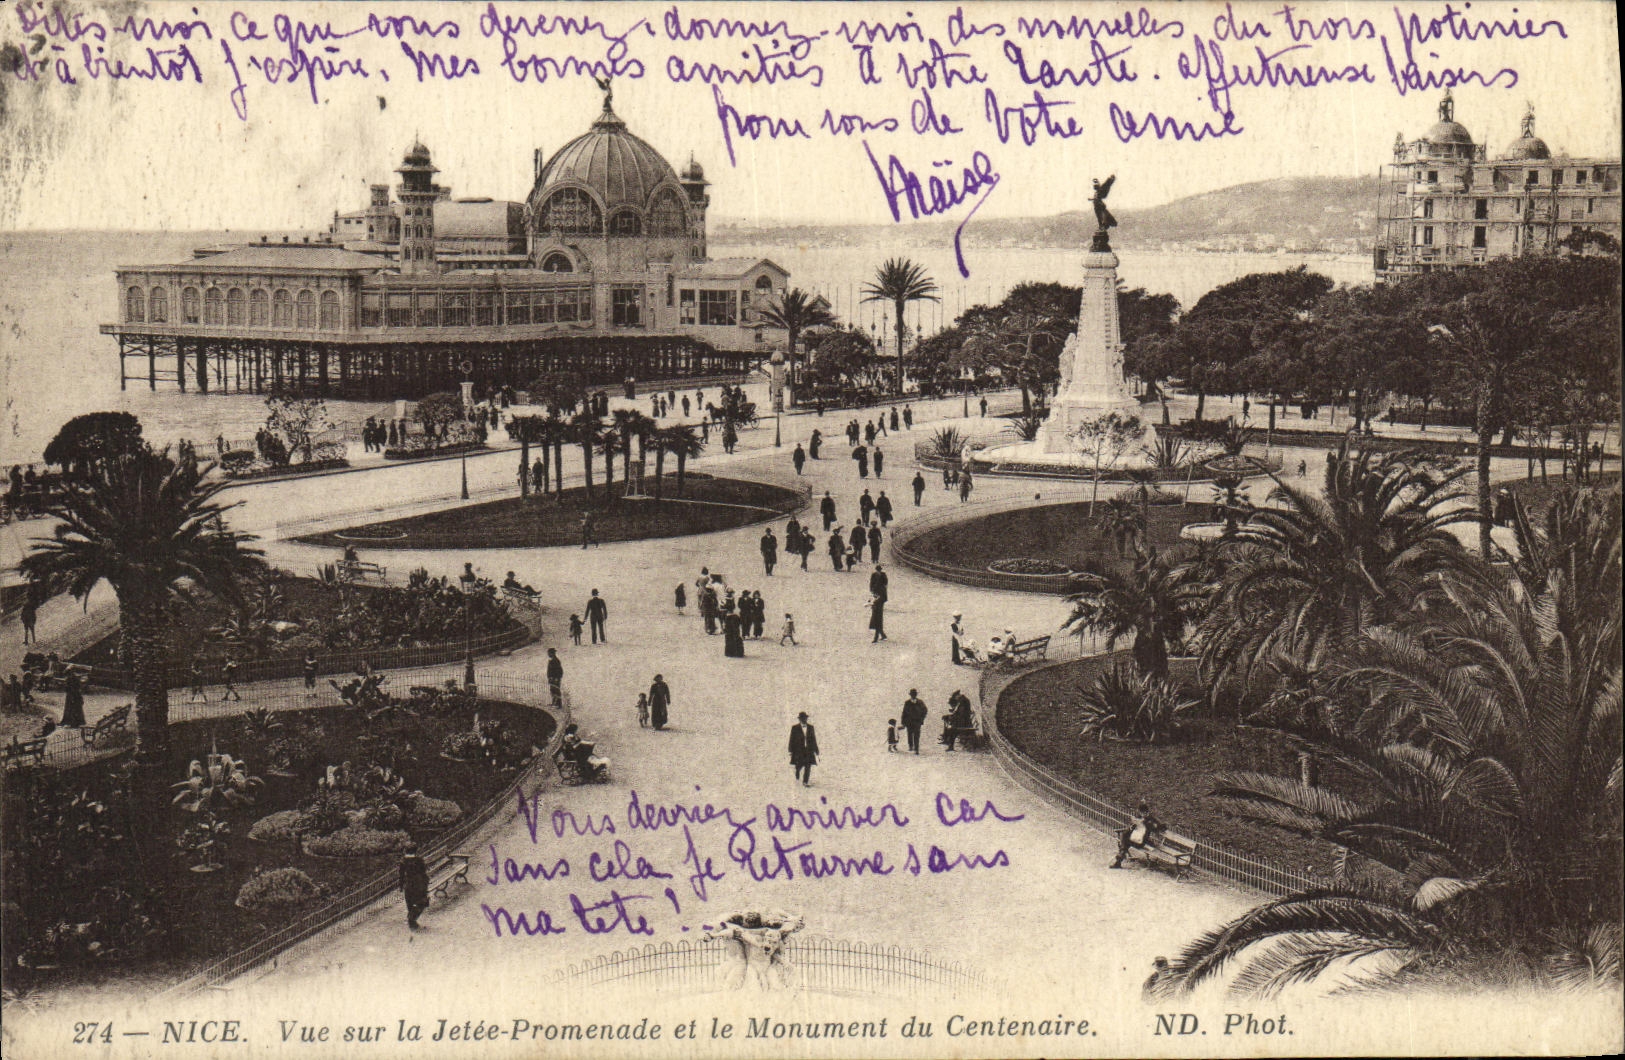 Dites-moi ce que vous devenez, donnez-moi des nouvelles du trois potinier
et à bientôt j'espère. Mes bonnes amitiés à votre Tante. Affectueuse baisers
pour vous de Votre amie
Maïse
Vous devriez arriver car
sans cela je Retourne sans
ma tête!..
274 — NICE. Vue sur la Jetée-Promenade et le Monument du Centenaire. ND. Phot.